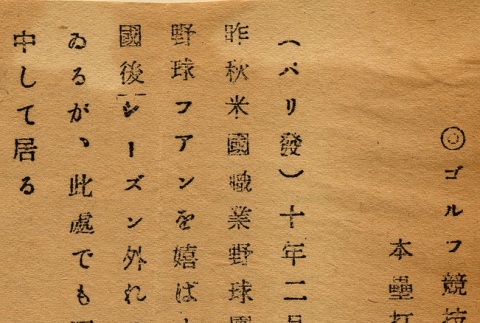 ◎ゴルフ競技
本壘打
（パリ發）十年二月
昨秋米國職業野球團
野球フアンを嬉ば
國後シーズン外れ
ゐるが、此處でも
中して居る